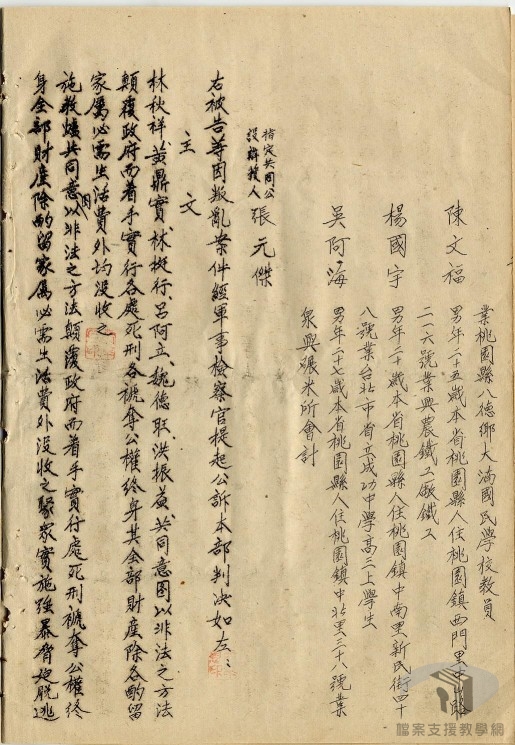 業桃園縣八德鄉大湳國民學校教員
陳文福 男年二十五歲本省桃園縣人住桃園鎮西門里中山路
二一六號業興農鐵工廠鐵工
楊國宇 男年二十歲本省桃園縣人住桃園鎮中南里新民街四十
八號業台北市省立成功中學高三上學生
吳阿海 男年二十七歲本省桃園縣人住桃園鎮中北里三十八號業
泉興碾米所會計
指定共同公
設辯護人 張元傑
右被告等因叛亂案件經軍事檢察官提起公訴本部判決如左：
主文
林秋祥、黃鼎實、林挺行、呂阿立、魏德旺、洪振益、共同意圖以非法之方法
顛覆政府而着手實行各處死刑各褫奪公權終身其全部財產除各酌留
家屬必需生活費外均沒收之
施教爐共同意圖以非法之方法顛覆政府而着手實行處死刑褫奪公權終
身全部財產除酌留家屬必需生活費外沒收之聚眾實施強暴脅迫脫逃
檔案支援教學網